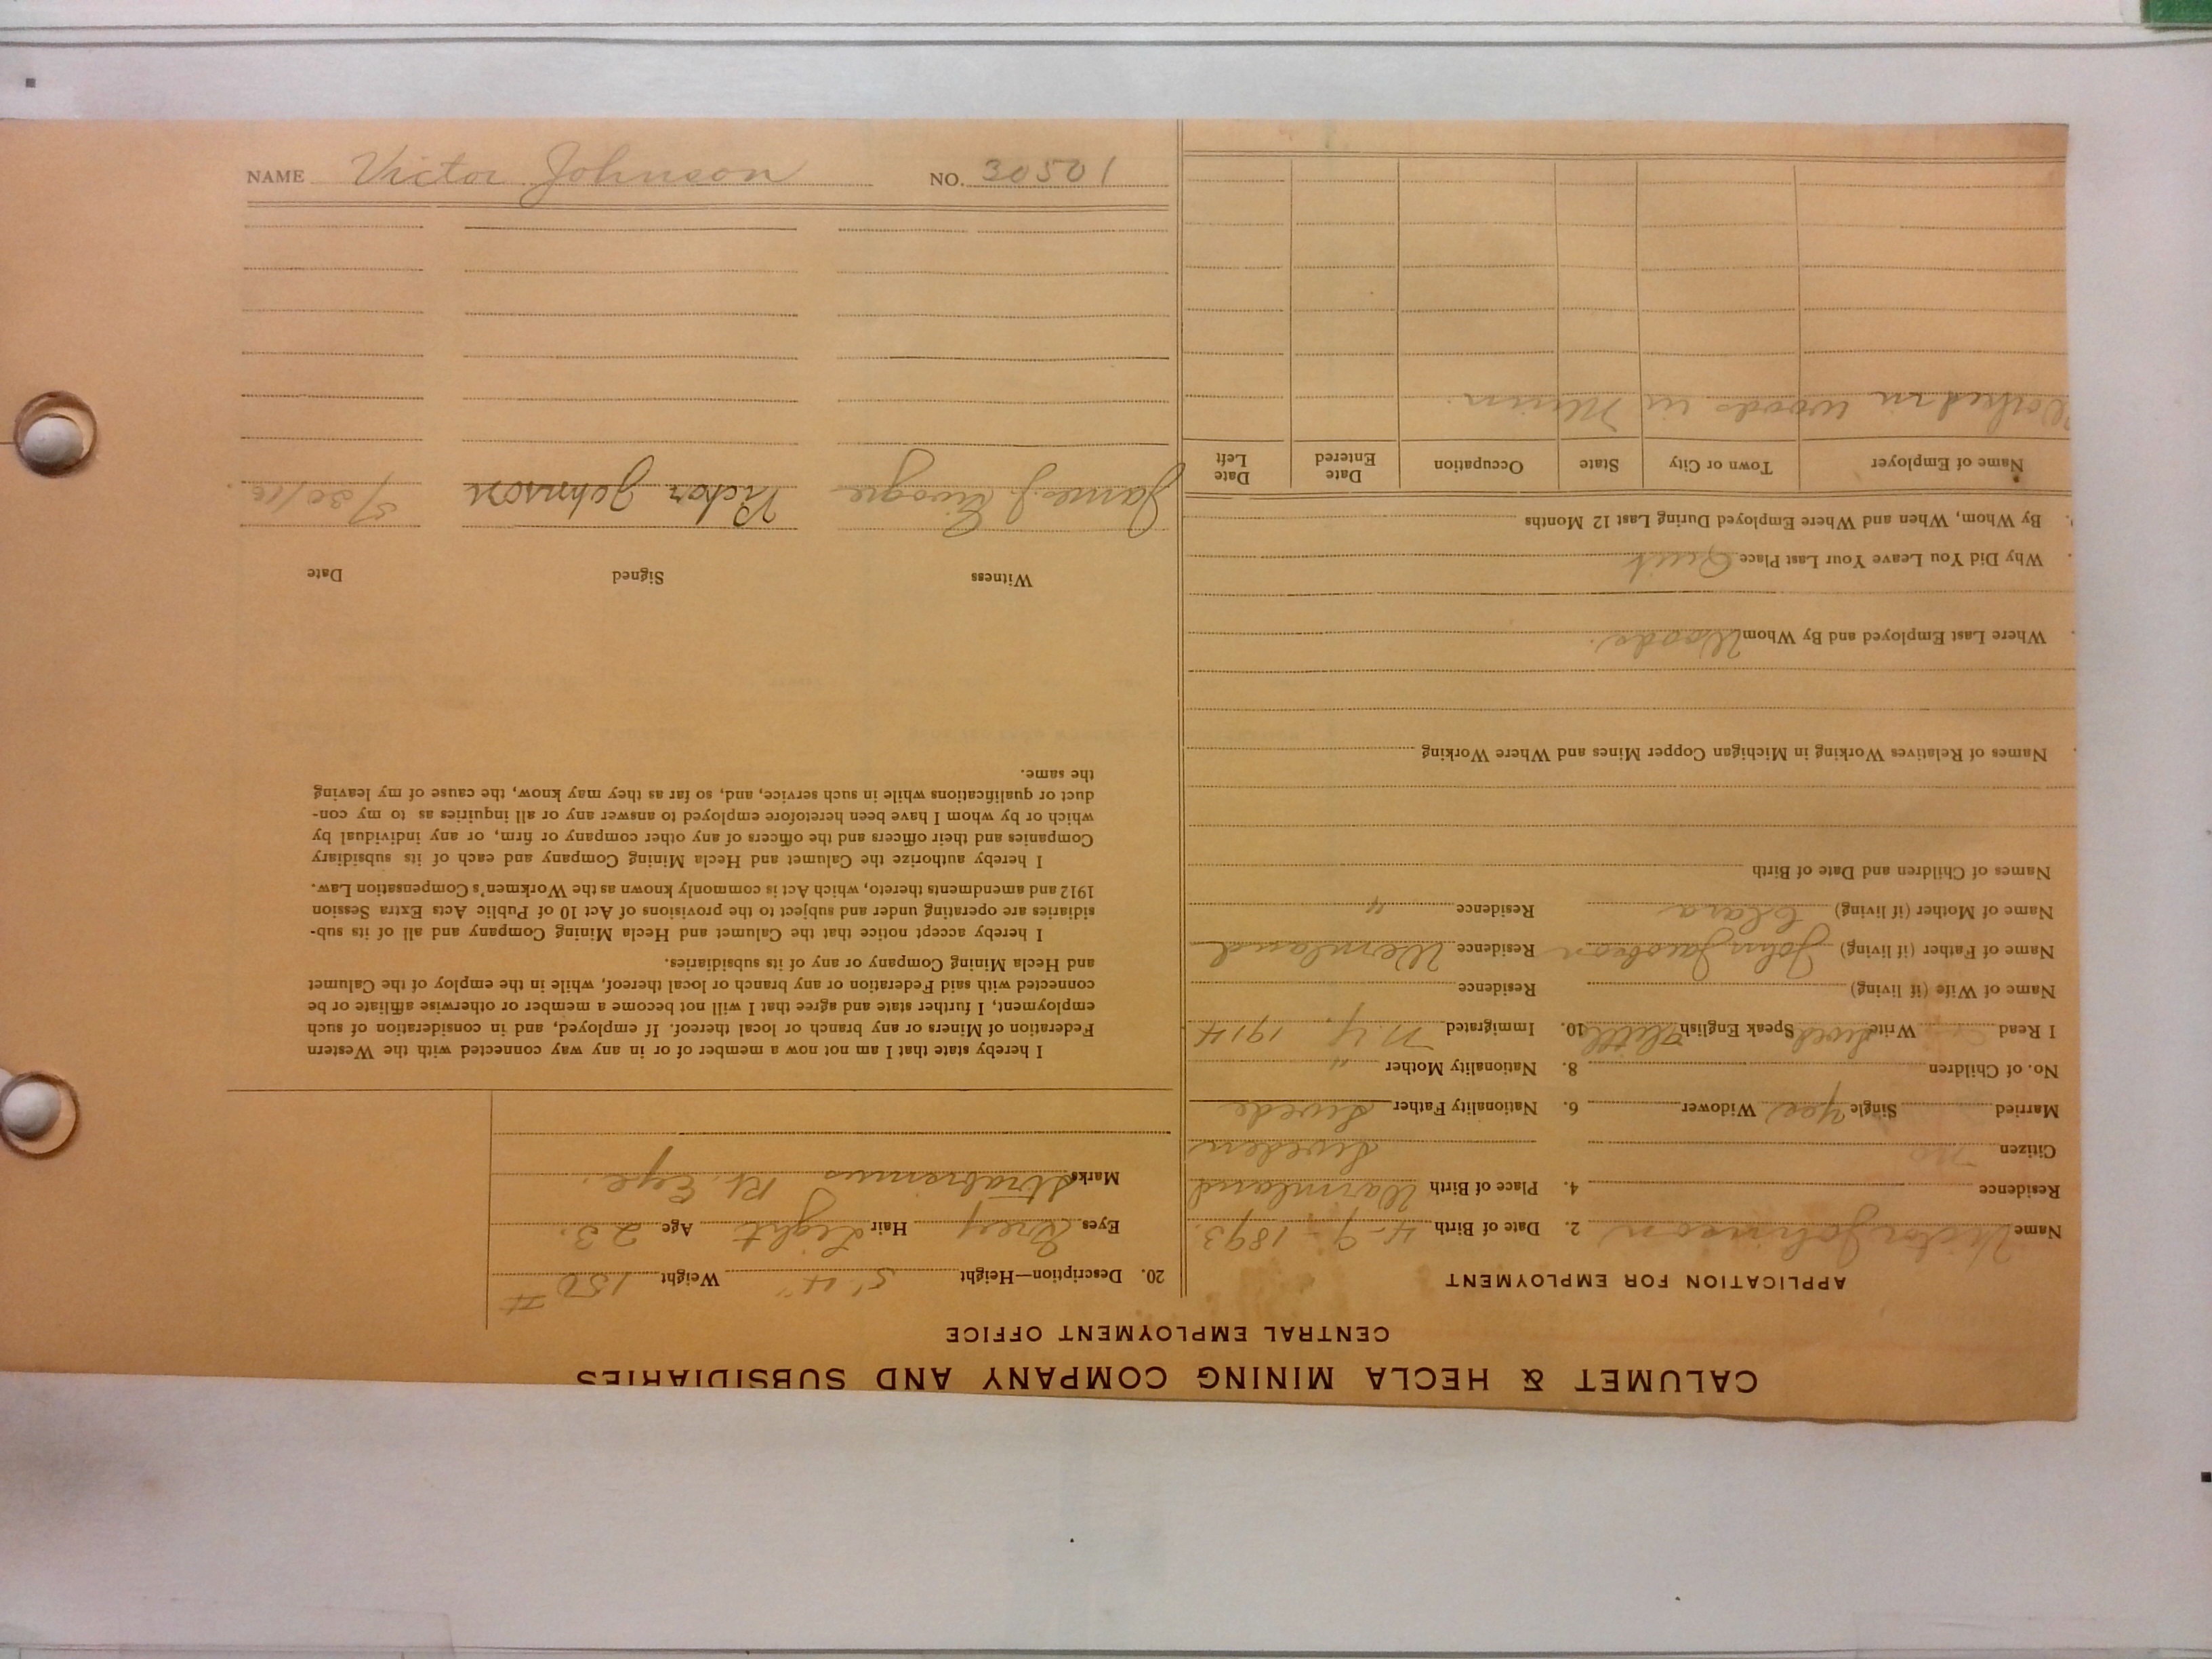 NAME Victor Johnson NO. 30501
CALUMET & HECLA MINING COMPANY AND SUBSIDIARIES
CENTRAL EMPLOYMENT OFFICE
APPLICATION FOR EMPLOYMENT
Name Victor Johnson 2. Date of Birth 4-9-1893.
Residence 4. Place of Birth Warmland
Citizen no Sweden
Married Single Yes Widower 6. Nationality Father Swede
No. of Children 8. Nationality Mother "
I Read Write Swed Speak English Little 10. Immigrated N.Y. 1914
Name of Wife (if living) Residence
Name of Father (if living) John Jacobson Residence Wermland
Name of Mother (if living) Clara Residence "
Names of Children and Date of Birth
Names of Relatives Working in Michigan Copper Mines and Where Working
Where Last Employed and By Whom Woods.
Why Did You Leave Your Last Place Quit
By Whom, When and Where Employed During Last 12 Months
Name of Employer Town or City State Occupation Date Entered Date Left
Worked in woods in Minn.
20. Description—Height 5' 4" Weight 150 #
Eyes Grey Hair Light Age 23.
Marks Rt. Eye.
I hereby state that I am not now a member of or in any way connected with the Western
Federation of Miners or any branch or local thereof. If employed, and in consideration of such
employment, I further state and agree that I will not become a member or otherwise affiliate or be
connected with said Federation or any branch or local thereof, while in the employ of the Calumet
and Hecla Mining Company or any of its subsidiaries.
I hereby accept notice that the Calumet and Hecla Mining Company and all of its sub-
sidiaries are operating under and subject to the provisions of Act 10 of Public Acts Extra Session
1912 and amendments thereto, which Act is commonly known as the Workmen's Compensation Law.
I hereby authorize the Calumet and Hecla Mining Company and each of its subsidiary
Companies and their officers and the officers of any other company or firm, or any individual by
which or by whom I have been heretofore employed to answer any or all inquiries as to my con-
duct or qualifications while in such service, and, so far as they may know, the cause of my leaving
the same.
Witness Signed Date
James J. Victor Johnson 5/30/16.